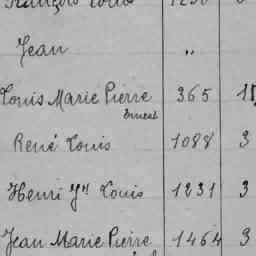 François Louis 1230
Jean "
Louis Marie Pierre 365 11
Ernest
René Louis 1088 3
Henri Louis 1231 3
Jean Marie Pierre 1464 3